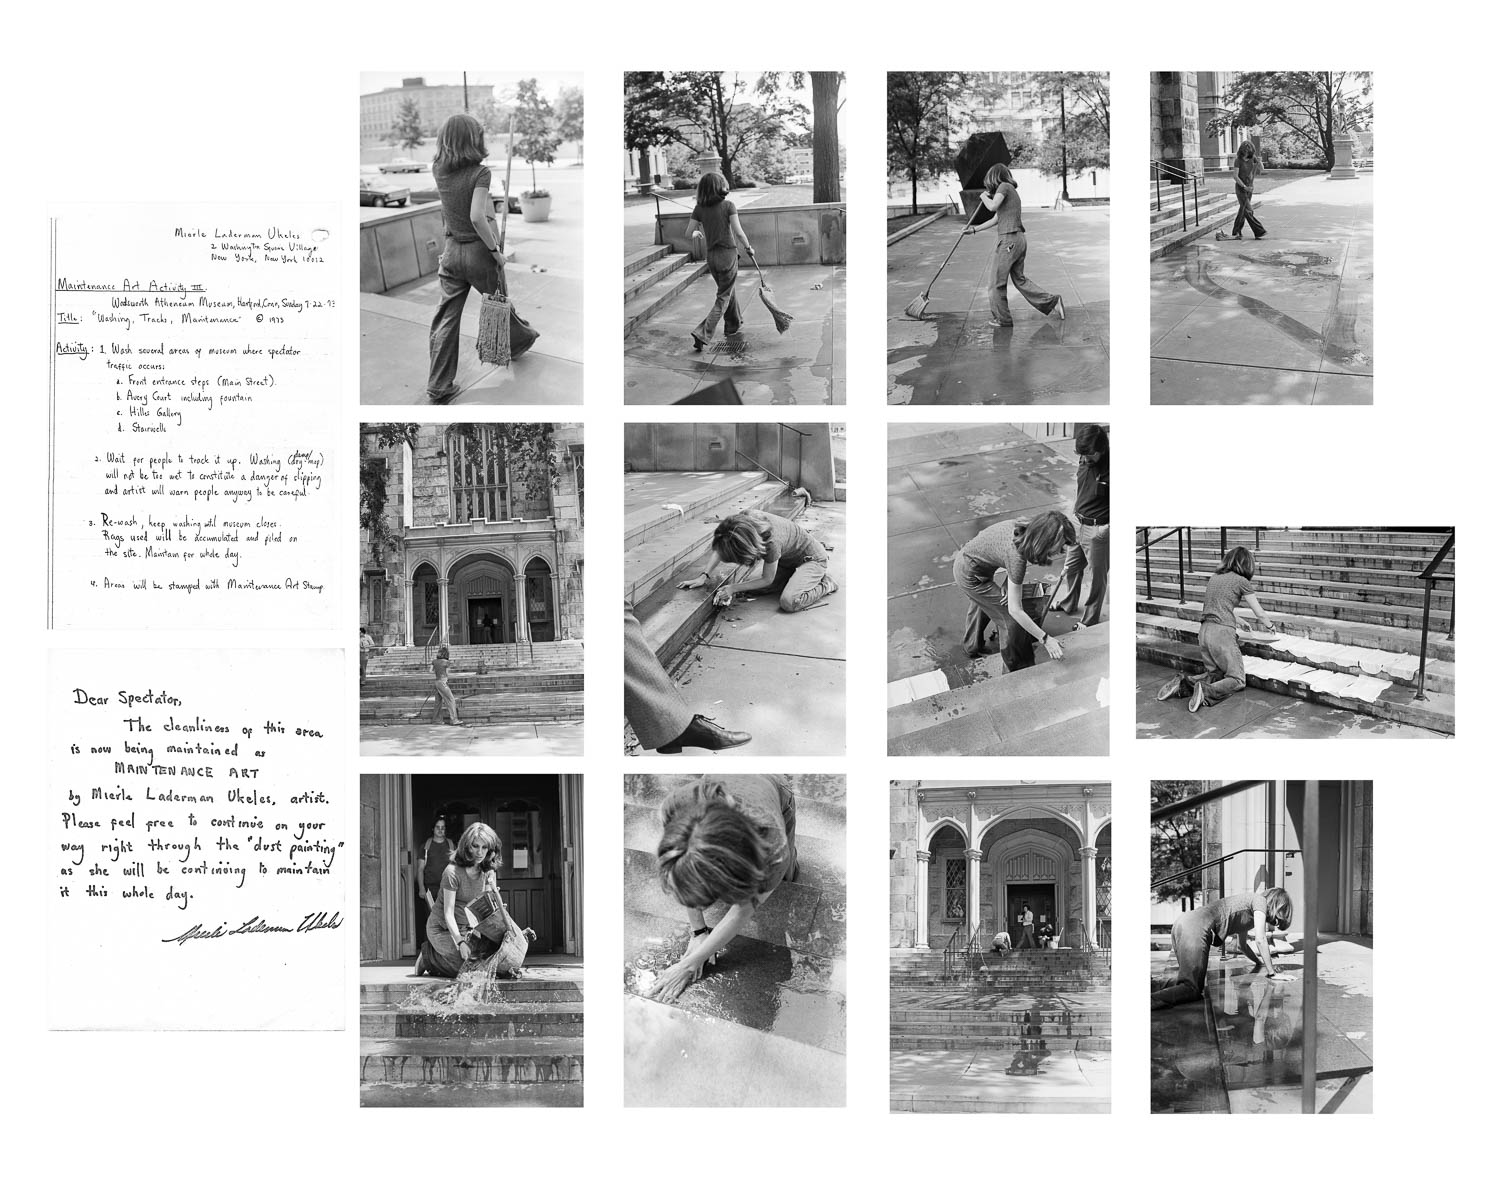 Mierle Laderman Ukeles
2 Washington Square Village
New York, New York 10012
Maintenance Art Activity III.
Wadsworth Atheneum Museum, Hartford, Conn, Sunday 7-22-73
Title: "Washing, Tracks, Maintenance" © 1973
Activity: 1. Wash several areas of museum where spectator
traffic occurs:
a. Front entrance steps (Main Street).
b. Avery Court including fountain
c. Hilles Gallery
d. Stairwells
2. Wait for people to track it up. Washing (damp/dry-mop)
will not be too wet to constitute a danger of slipping
and artist will warn people anyway to be careful.
3. Re-wash, keep washing until museum closes.
Rags used will be accumulated and piled on
the site. Maintain for whole day.
4. Areas will be stamped with Maintenance Art Stamp.
Dear Spectator,
The cleanliness of this area
is now being maintained as
MAINTENANCE ART
by Mierle Laderman Ukeles, artist.
Please feel free to continue on your
way right through the "dust painting"
as she will be continuing to maintain
it this whole day.
Mierle Laderman Ukeles